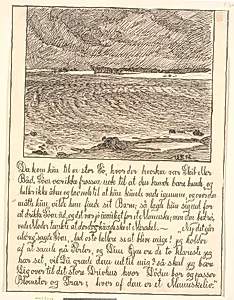 Da kom hun til en stor Sø, hvor der hverken var Skib eller
Båd. Søen var ikke frossen nok til at den kunde bære hende, og
heller ikke åben og lav nok til at hun kunde vade igennem, og over den
måtte hun, vilde hun finde sit Barn; så lagde hun sig ned for
at drikke Søen ud, og det var jo umuligt for et Menneske; men den bedrø-
vede Moder tænkte at der dog måske skete et Mirakel. — „Nej det går
aldrig sagde Søen, lad os to hellere se at blive enige! jeg holder
af at samle på Perler, og Dine Øjne ere de to klareste jeg
har set, vil Du græde dem ud til mig? så skal jeg bære
Dig over til det store Drivhus hvor Døden bor og passer
Blomster og Træer; hver af dem er et Menneskeliv."